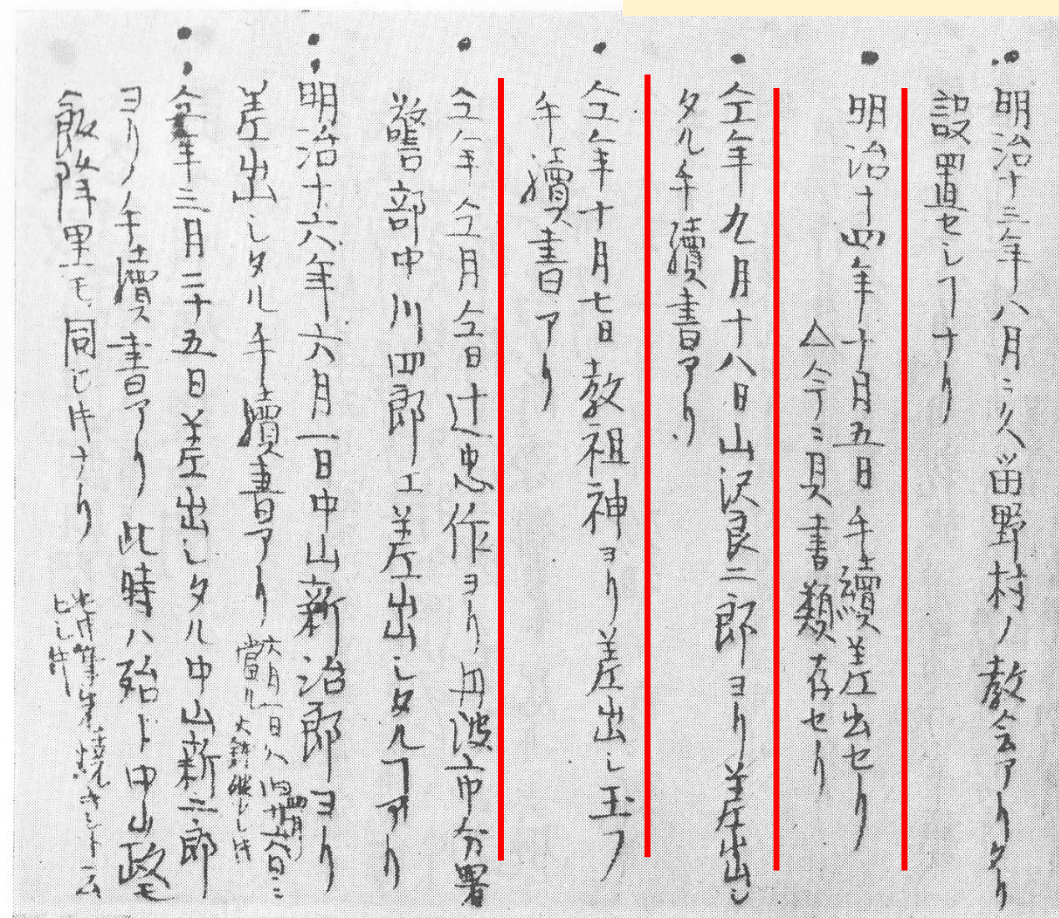 明治十三年八月ニ久留野村ノ教会アリタリ
設置セシヿナリ
明治十四年十月五日手續差出セリ
△今ニ具書類存セリ
仝年九月十八日山沢良二郎ヨリ差出シ
タル手續書アリ
仝年十月七日教祖神ヨリ差出シ玉フ
手續書アリ
仝年仝月仝日辻忠作ヨリ丹波市分署
警部中川四郎エ差出シタルヿアリ
明治十六年六月一日中山新治郎ヨリ
差出シタル手續書アリ 六月一日ハ
當ル大
仝年三月二十五日差出シタル中山新二郎
ヨリノ手續書アリ 此時ハ殆ド中山政モ
飯降里モ同じ牛ナリ